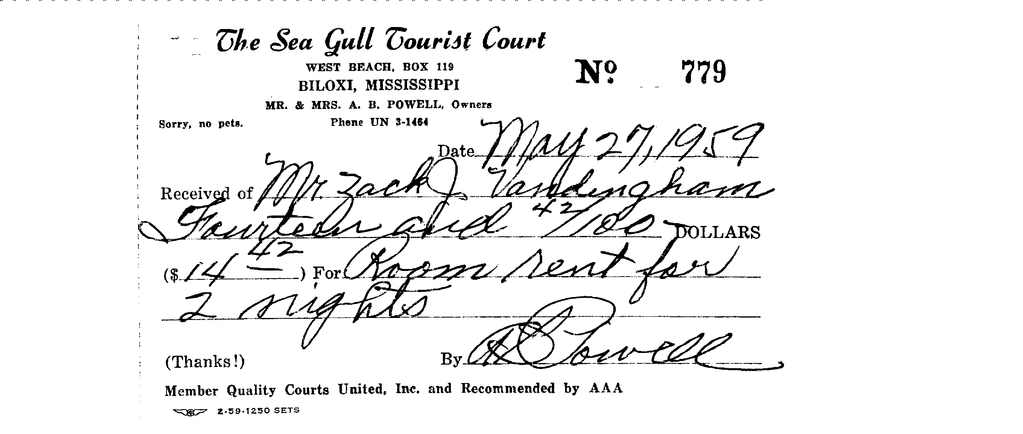 The Sea Gull Tourist Court
WEST BEACH, BOX 119
BILOXI, MISSISSIPPI
MR. & MRS. A. B. POWELL, Owners
Sorry, no pets. Phone UN 3-1464
Nº 779
Date May 27, 1959
Received of Mr Zack J. Vandingham
Fourteen and 42/100 DOLLARS
($ 14 42) For Room rent for
2 nights
(Thanks!) By AB Powell
Member Quality Courts United, Inc. and Recommended by AAA
2-59-1250 SETS